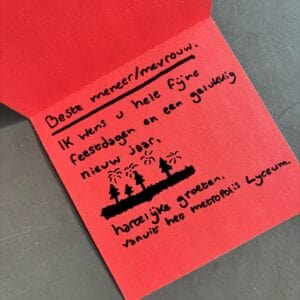 Beste meneer/mevrouw,
Ik wens u hele fijne
feestdagen en een gelukkig
nieuw jaar.
hartelijke groeten,
vanuit het metropolis Lyceum.